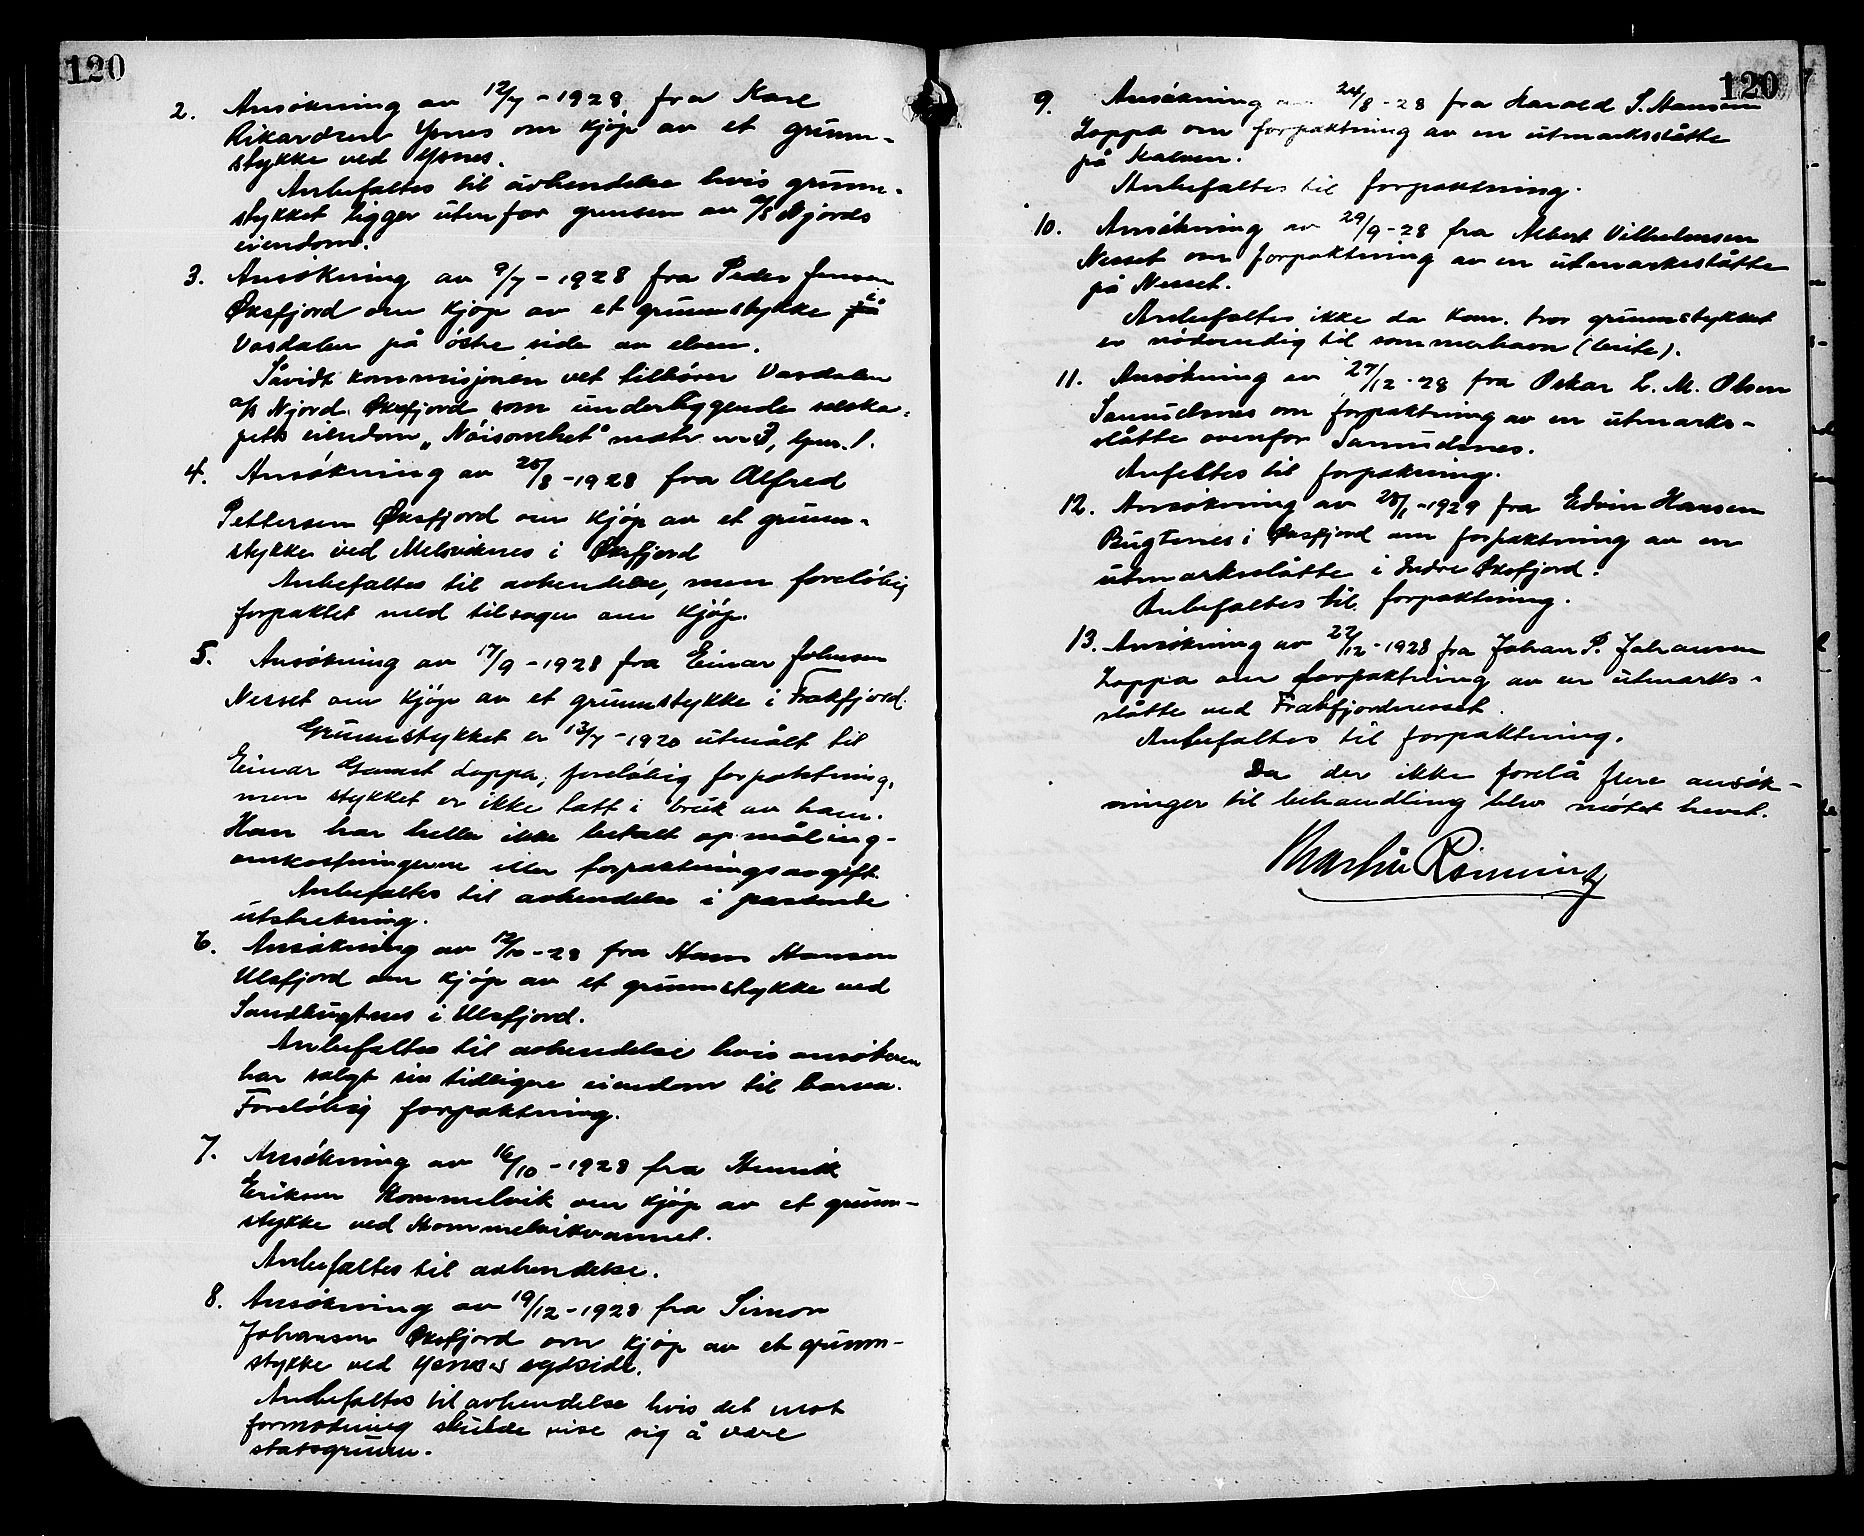 120
2. Ansökning av 12/7-1928 fra Karl
Rikardsen Ysnes om kjöp av et grunn-
stykke ved Ysnes.
Anbefaltes til avhendelse hvis grunn-
stykket ligger utenfor grensen av A/S Njords
eiendom.
3. Ansökning av 9/7-1928 fra Peder Jensen
Øksfjord om kjöp av et grunnstykke på i
Vasdalen på östre side av elven.
Såvidt kommisjonen vet tilhörer Vasdalen
a/s Njord. Øksfjord som underliggende selska-
pets eiendom „Nöisomhet" matr. nr 3, lpnr. 1.
4. Ansökning av 25/8-1928 fra Alfred
Pettersen Øksfjord om kjöp av et grunn-
stykke ved Melsviknes i Øksfjord
Anbefaltes til avhendelse, men forelöbig
forpaktet med tilsagn om kjöp.
5. Ansökning av 17/9-1928 fra Einar Johnsen
Nesset om kjöp av et grunnstykke i Frakfjord.
Grunnstykket er 13/7-1920 utmålt til
Einar Gamst Loppa, forelöbig forpaktning,
men stykket er ikke tatt i bruk av ham.
Han har heller ikke betalt opmåling-
omkostningerne eller forpaktningsavgift.
Anbefaltes til avhendelse i passende
utstrekning.
6. Ansökning av 12/10-28 fra Hans Hansen
Ulsfjord om kjöp av et grunnstykke ved
Sandbugtnes i Ulsfjord.
Anbefaltes til avhendelse hvis ansökeren
har solgt sin tidligere eiendom til barna.
Forelöbig forpaktning.
7. Ansökning av 16/10-1928 fra Henrik
Eriksen Kommelvik om kjöp av et grunn-
stykke ved Kommelvikvannet.
Anbefaltes til avhendelse.
8. Ansökning av 19/12-1928 fra Simon
Johansen Øksfjord om kjöp av et grunn-
stykke ved Ysnes sydside.
Anbefaltes til avhendelse hvis det mot
formodning skulde vise sig å være
statsgrunn.
120
9. Ansökning av 24/8-28 fra Harald S. Hansen
Loppa om forpaktning av en utmarksslåtte
på Kalven.
Anbefaltes til forpaktning.
10. Ansökning av 29/9-28 fra Albert Vilhelmsen
Nesset om forpaktning av en utmarksslåtte
på Nesset.
Anbefaltes ikke da kom. tror grunnstykket
er nödvendig til sommerhavn (beite).
11. Ansökning av 27/12-28 fra Oskar L. M. Olsen
Samuelsnes om forpaktning av en utmarks-
slåtte ovenfor Samuelsnes.
Anfeltes til forpakning.
12. Ansökning av 28/1-1929 fra Edvin Hansen
Bugtenes i Øksfjord om forpaktning av en
utmarksslåtte i Indre Øksfjord.
Anbefaltes til forpaktning.
13. Ansökning av 22/12-1928 fra Johan P. Johansen
Loppa om forpaktning av en utmarks-
slåtte ved Frakfjordnesset.
Anbefaltes til forpaktning.
Da der ikke forelå flere ansök-
ninger til behandling blev mötet hevet.
Martin Rönning